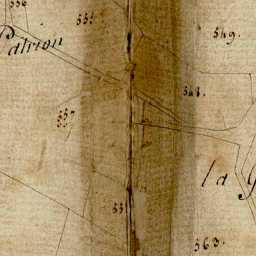 556
551
549.
Patrion
548.
557
la G
55
563.